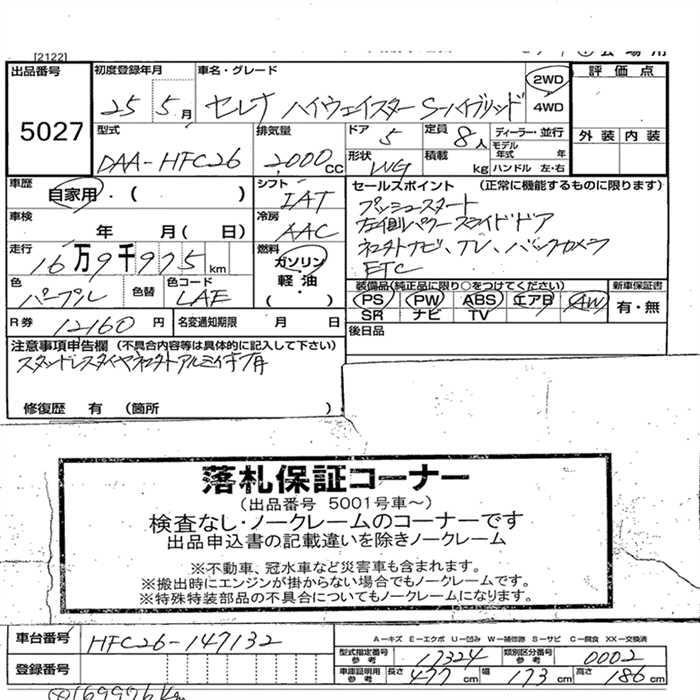 [2122]
出品番号
5027
初度登録年月
25 5月
車名・グレード
セレナ ハイウェイスター S-ハイブリッド
2WD
4WD
評価点
外装 内装
型式
DAA-HFC26
排気量
2000cc
ドア 5
定員 8人
形状 WG
積載 kg
ディーラー・並行
モデル年式 年
ハンドル 左・右
車歴
自家用・( )
シフト
IAT
セールスポイント (正常に機能するものに限ります)
プッシュスタート
左側パワースライドドア
ネットナビ、TV、バックカメラ
ETC
車検
年 月(日)
冷房
AAC
走行
16万9千975km
燃料
ガソリン
軽油
( )
色
パープル
色替
色コード
LAE
装備品(純正品に限り○をつけてください)
PS PW ABS エアB AW
SR ナビ TV
新車保証書
有・無
R券 12160円
名変通知期限 月 日
後日品
注意事項申告欄 (不具合内容等は具体的に記入して下さい)
修復歴 有 (箇所 )
落札保証コーナー
(出品番号 5001号車～)
検査なし・ノークレームのコーナーです
出品申込書の記載違いを除きノークレーム
※不動車、冠水車など災害車も含まれます。
※搬出時にエンジンが掛からない場合でもノークレームです。
※特殊特装部品の不具合についてもノークレームになります。
車台番号 HFC26-147132
A-キズ E-エクボ U-凹み W-補修跡 S-サビ C-腐食 XX-交換済
型式指定番号 参考 17324
類別区分番号 参考 0002
登録番号
車庫証明用 参考 長さ 477cm 幅 173cm 高さ 186cm
169976km